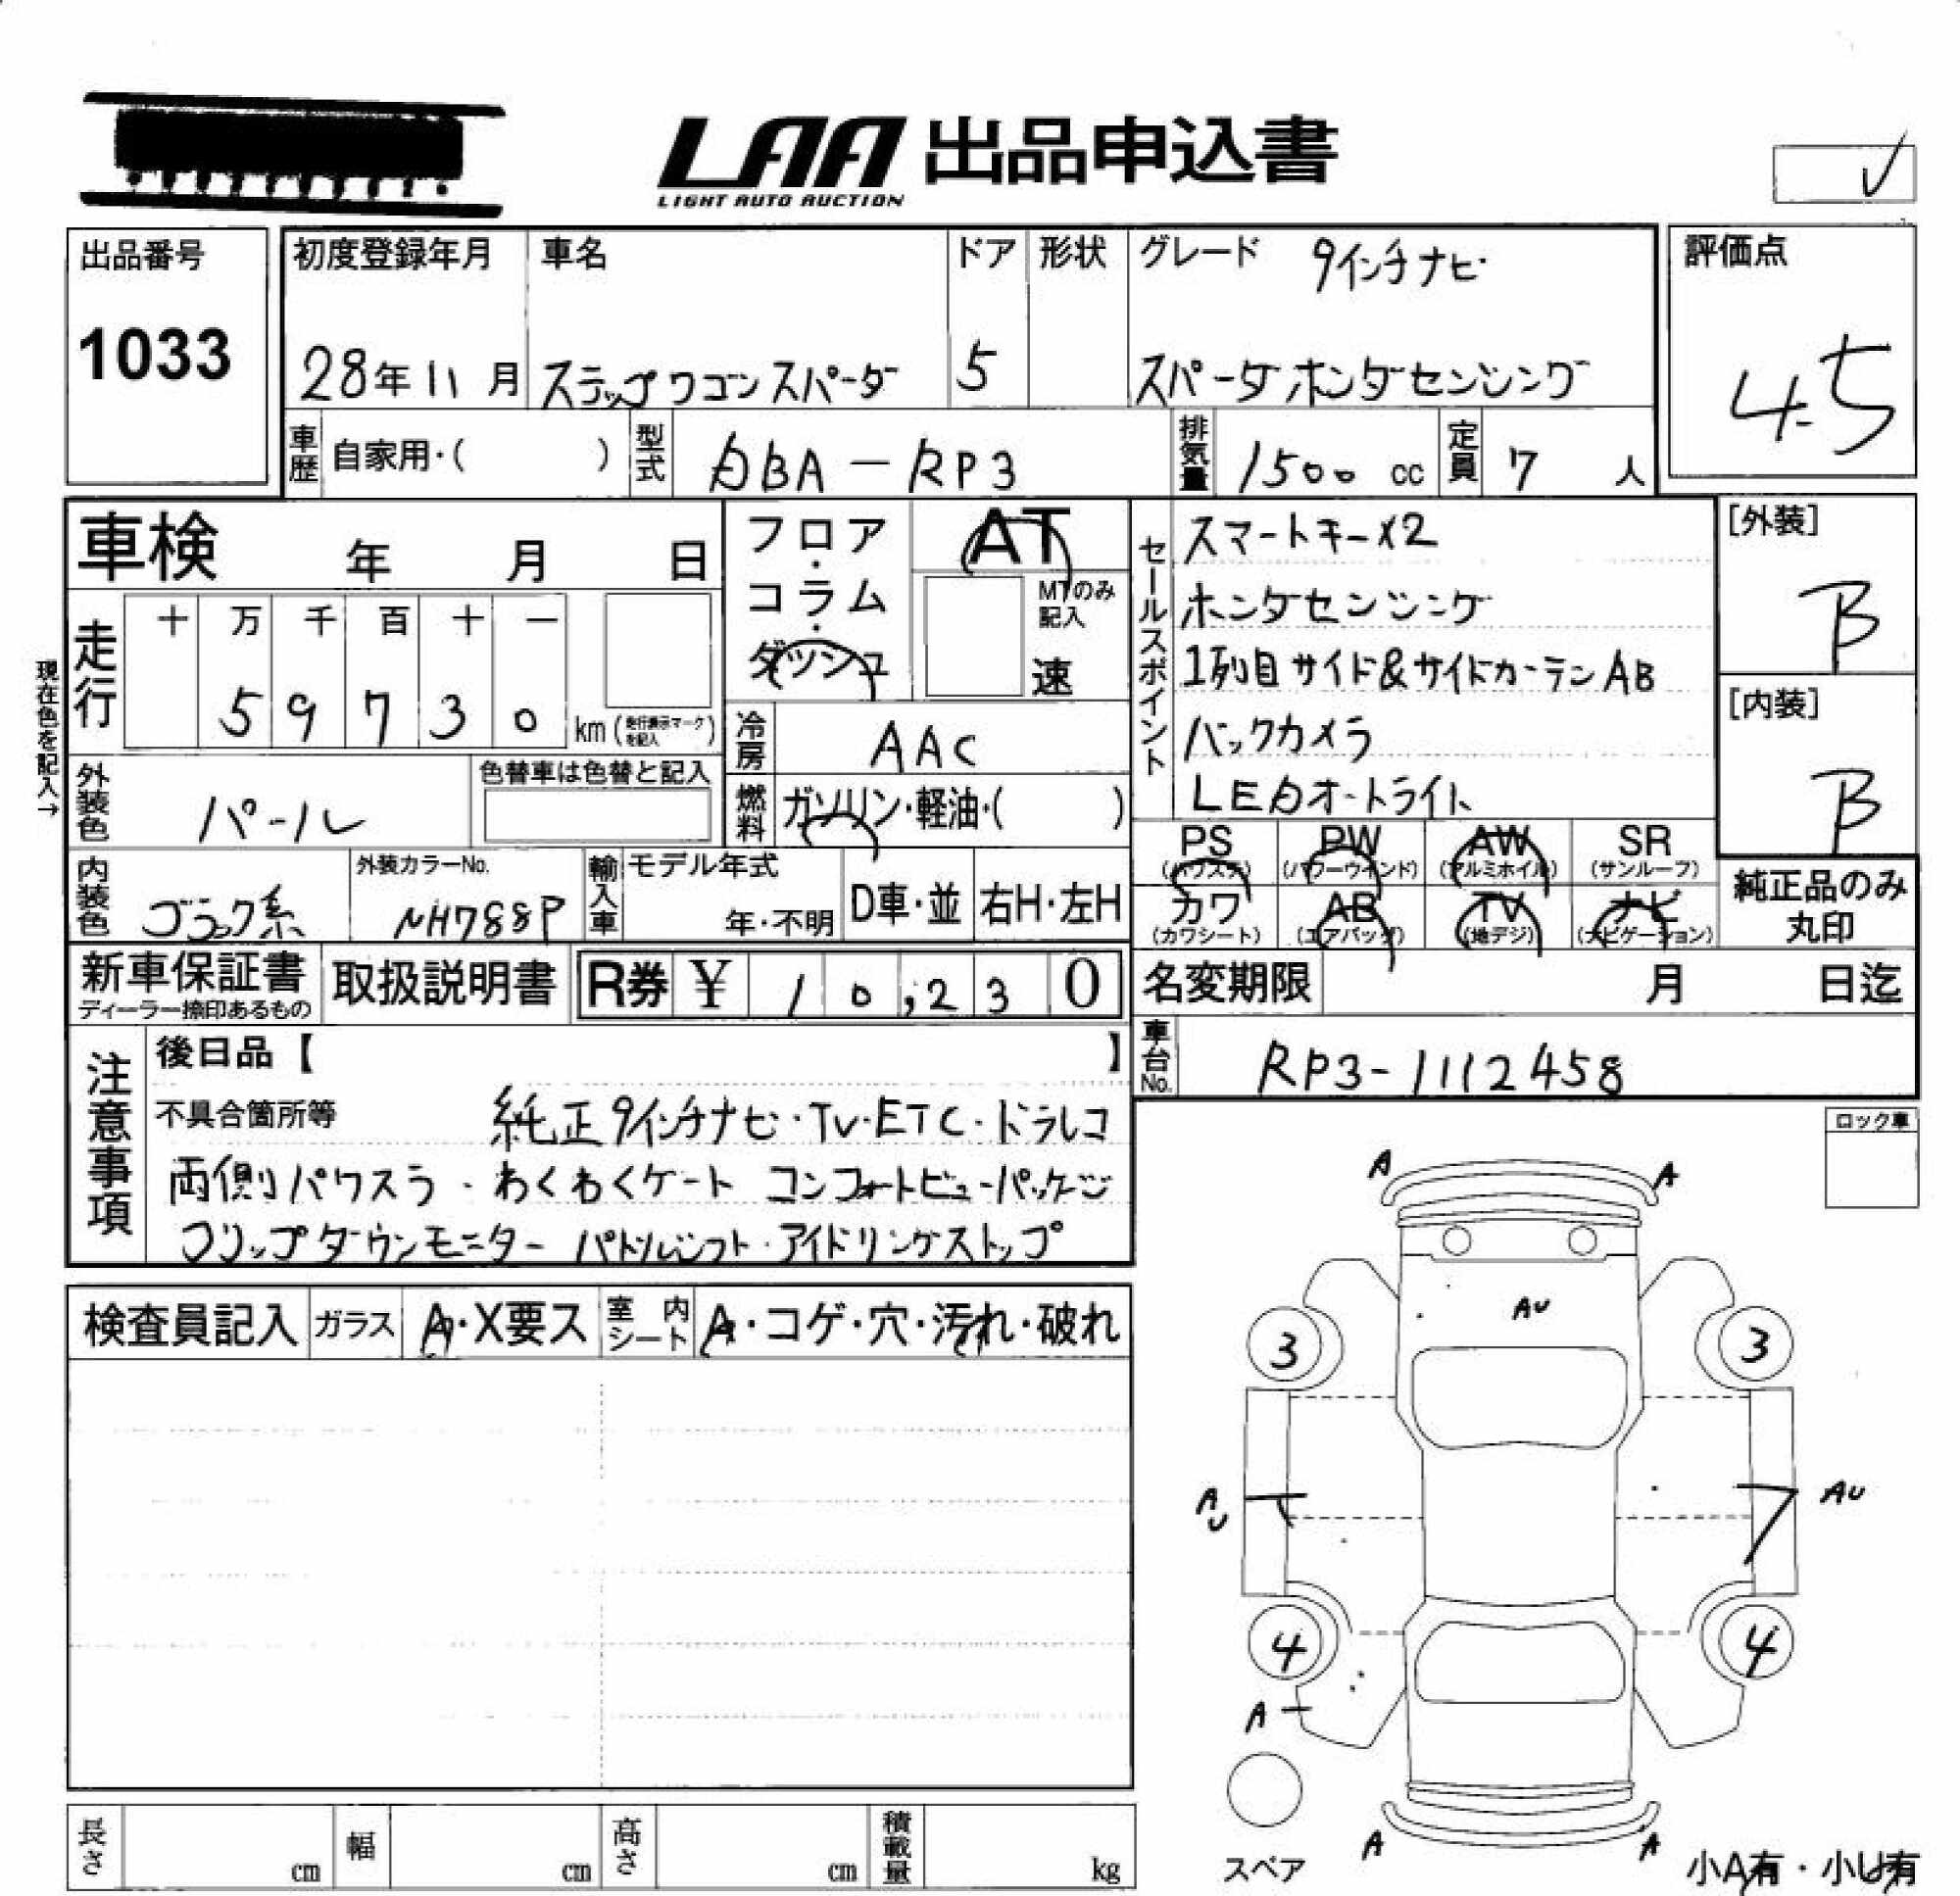 LAA 出品申込書
LIGHT AUTO AUCTION
出品番号
1033
初度登録年月
28年11月
車名
ステップワゴンスパーダ
ドア
5
形状
グレード 9インチナビ
スパーダホンダセンシング
評価点
4.5
車歴 自家用・( )
型式 DBA-RP3
排気量 1500 cc
定員 7 人
車検 年 月 日
フロア・コラム・ダッシュ
AT
MTのみ記入
速
セールスポイント
スマートキー×2
ホンダセンシング
1列目サイド&サイドカーテンAB
バックカメラ
LEDオートライト
[外装]
B
[内装]
B
現在色を記入→
走行
十 万 千 百 十 一
5 9 7 3 0 km (走行表示マークを記入)
冷房 AAC
外装色 パール
色替車は色替と記入
燃料 ガソリン・軽油・( )
内装色 ブラック系
外装カラーNo.
NH788P
輸入車
モデル年式
年・不明
D車・並
右H・左H
PS (パワステ)
PW (パワーウインド)
AW (アルミホイル)
SR (サンルーフ)
カワ (カワシート)
AB (エアバッグ)
TV (地デジ)
ナビ (ナビゲーション)
純正品のみ丸印
新車保証書
ディーラー捺印あるもの
取扱説明書
R券 ¥ 10,230
名変期限 月 日迄
車台No. RP3-1112458
注意事項
後日品【 】
不具合箇所等 純正9インチナビ・TV・ETC・ドラレコ
両側パワスラ・わくわくゲート コンフォートビューパッケージ
フリップダウンモニター パドルシフト・アイドリングストップ
ロック車
検査員記入
ガラス A・X要ス
室内シート A・コゲ・穴・汚れ・破れ
A A
AU
3 3
AU AU
4 4
A
A A
スペア
小A有・小U有
長さ cm
幅 cm
高さ cm
積載量 kg